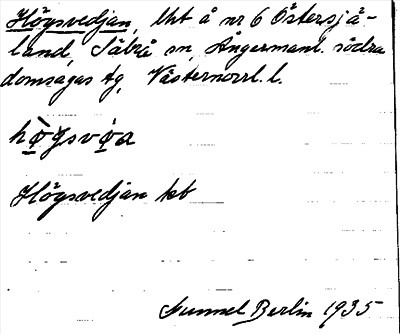 Högsvedjan, lht å nr 6 Östersjö-
land, Säbrå sn, Ångermanl. södra
domsagas tg, Västernorrl. l.
hø̀gsvø̣a
Högsvedjan kb
Gunnel Berlin 1935